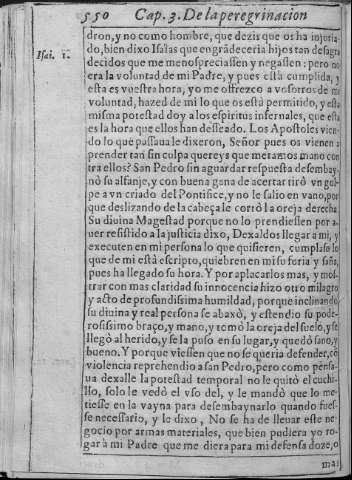 550 Cap. 3. De la peregrinacion
dron, y no como hombre, que dezis que os ha injuria-
Isai. 1. do, bien dixo Isaïas que engrãdeceria hijos tan desagra
decidos que me menospreciassen y negassen: pero no
era la voluntad de mi Padre, y pues està cumplida, y
esta es vuestra hora, yo me offrezco a vosotros de mi
voluntad, hazed de mi lo que os está permitido, y esta
misma potestad doy a los espiritus infernales, que esta
es la hora que ellos han desseado. Los Apostoles vien-
do lo que passaua le dixeron, Señor pues os vienen a
prender tan sin culpa quereys que metamos mano con
tra ellos? San Pedro sin aguardar respuesta desembay-
nò su alfanje, y con buena gana de acertar tirò vn gol-
pe a vn criado del Pontifice, y no le salio en vano, por
que deslizando de la cabeça le cortò la oreja derecha
Su diuina Magestad porque no lo prendiessen por a-
uer resistido a la justicia dixo, Dexaldos llegar a mi, y
executen en mi persona lo que quisieren, cumplase lo
que de mi està escripto, quiebren en mi su foria y saña,
pues ha llegado su hora. Y por aplacarlos mas, y mos-
trar con mas claridad su innocencia hizo otro milagro
y acto de profundissima humildad, porque inclinando
su diuina y real persona se abaxò, y estendio su pode-
rosissimo braço, y mano, y tomò la oreja del suelo, y se
llegò al herido, y se la puso en su lugar, y quedó sano, y
bueno. Y porque viessen que no se queria defender, cõ
violencia reprehendio a san Pedro, pero como pensa-
ua dexalle la potestad temporal no le quitò el cuchi-
llo, solo le vedò el vso del, y le mandò que lo me-
tiesse en la vayna para desembaynarlo quando fues-
se necessario, y le dixo, No se ha de lleuar este ne-
gocio por armas materiales, que bien pudiera yo ro-
gar à mi Padre que me diera para mi defensa doze, o
mas